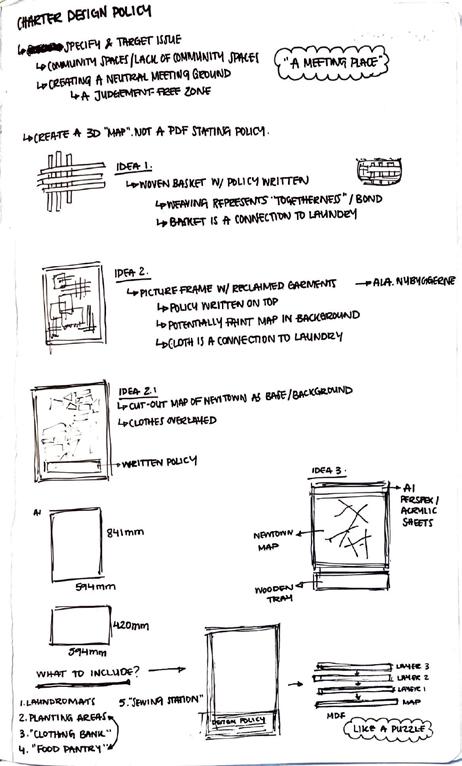 CHARTER DESIGN POLICY
↳ SPECIFY & TARGET ISSUE
↳ COMMUNITY SPACES/LACK OF COMMUNITY SPACES
↳ CREATING A NEUTRAL MEETING GROUND
↳ A JUDGEMENT-FREE ZONE
"A MEETING PLACE"
↳ CREATE A 3D "MAP". NOT A PDF STATING POLICY.
IDEA 1.
↳ WOVEN BASKET W/ POLICY WRITTEN
↳ WEAVING REPRESENTS "TOGETHERNESS" / BOND
↳ BASKET IS A CONNECTION TO LAUNDRY
IDEA 2.
↳ PICTURE FRAME W/ RECLAIMED GARMENTS → ALA. NYBYGGERNE
↳ POLICY WRITTEN ON TOP
↳ POTENTIALLY FAINT MAP IN BACKGROUND
↳ CLOTH IS A CONNECTION TO LAUNDRY
IDEA 2.1
↳ CUT-OUT MAP OF NEWTOWN AS BASE/BACKGROUND
↳ CLOTHES OVERLAYED
→ WRITTEN POLICY
IDEA 3.
→ A1 PERSPEX/
ACRYLIC
SHEETS
NEWTOWN
MAP
WOODEN
TRAY
A1
841mm
594mm
420mm
594mm
WHAT TO INCLUDE? →
1. LAUNDROMATS
2. PLANTING AREAS
3. "CLOTHING BANK"
4. "FOOD PANTRY"
5. "SEWING STATION"
DESIGN POLICY
LAYER 3
LAYER 2
LAYER 1
MAP
MDF
LIKE A PUZZLE